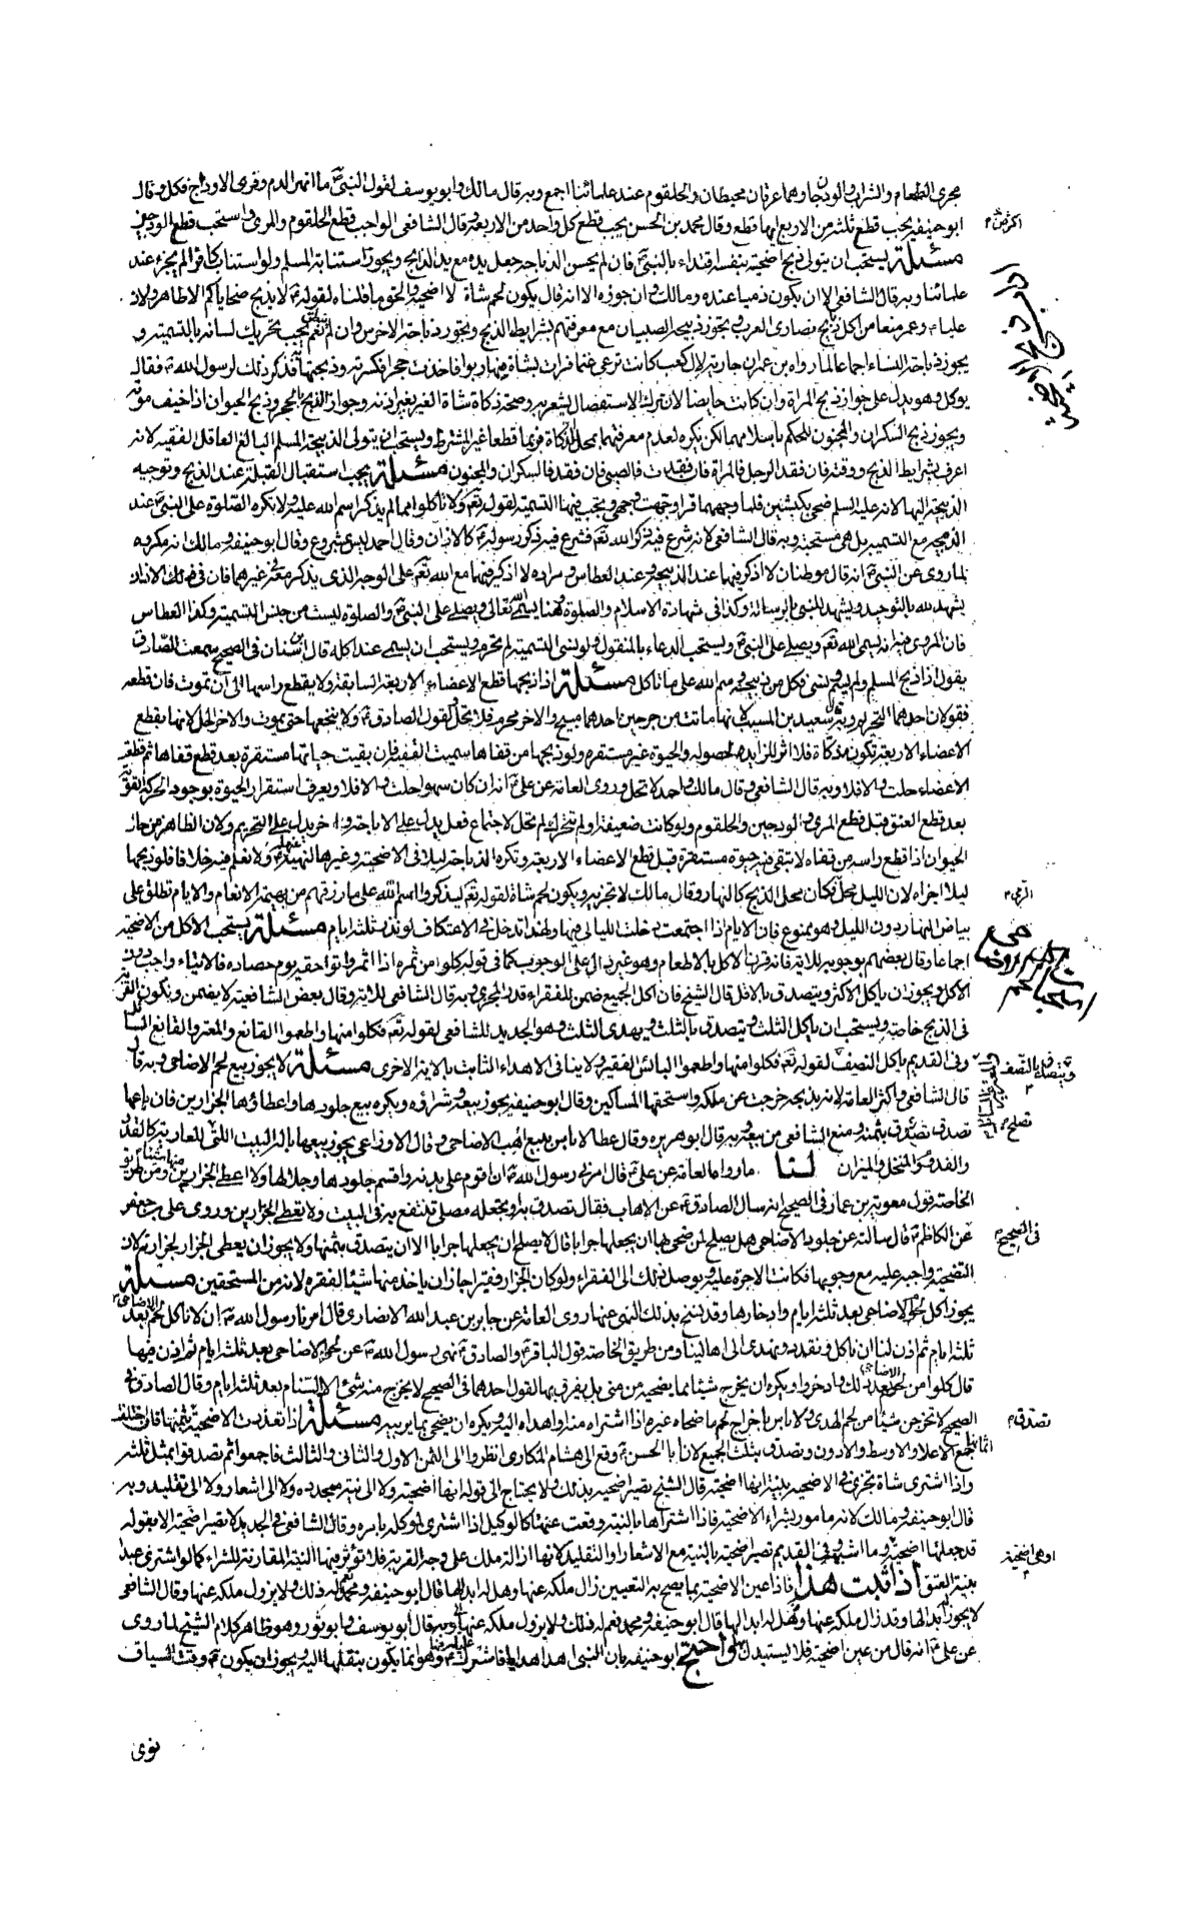 مجرى الطعام والشراب والودجان وهما عرقان محيطان بالحلقوم عند علمائنا اجمع وبه قال مالك وابو يوسف لقول النبي ص ما انهر الدم وفرى الاوداج فكل وقال
ابو حنيفه يجب قطع ثلثه من الاربعه ايها قطع وقال محمد بن الحسن يجب قطع كل واحد من الاربعه وقال الشافعي الواجب قطع الحلقوم والمرى واستحب قطع الودجين
مسئلة يستحب ان يتولى ذبح اضحيته بنفسه اقتداء بالنبي ص فان لم يحسن الذباحه جعل يده مع يد الذابح ويجوز استنابة المسلم ولو استناب كافرا لم يجزء عند
علمائنا وبه قال الشافعي الا ان يكون ذميا عنده ومالك وان جوزه الا انه قال يكون لحم شاة لا اضحيه والحق ما قلناه لقوله ع لا يذبح ضحاياكم الا طاهر ولان
عليا ع وعمر منعا من اكل ذبايح نصارى العرب ويجوز ذبيحه الصبيان مع معرفتهم بشرايط الذبح ويجوز ذباحة الاخرس وان لم ينطق نعم يجب تحريك لسانه بالتسميه و
يجوز ذباحة النساء اجماعا لما رواه بن عمر ان جاريه لال كعب كانت ترعى غنما فرات بشاة منها موتا فاخذت حجرا فكسرته وذبحتها به فذكر ذلك لرسول الله ص فقال
يوكل وهو يدل على جواز ذبح المراة وان كانت حايضا لانه ترك الاستفصال يشعر به وصحة ذكاة شاة الغير بغير اذنه وجواز الذبح بالحجر وذبح الحيوان اذا خيف موته
ويجوز ذبح السكران والمجنون للحكم باسلامهما لكن يكره لعدم معرفتهما محل الذكاة فربما قطعا غير المشترط ويستحب ان يتولى الذبيحه المسلم البالغ العاقل الفقيه لانه
اعرف بشرايط الذبح ووقته فان فقد الرجل فالمراة فان فقدت فالصبي فان فقد فالسكران والمجنون مسئلة يجب استقبال القبلة عند الذبح وتوجيه
الذبيحه اليها لانه عليه السلم ضحى بكبشين فلما وجههما قرا وجهت وجهي ويجب فيها التسميه لقوله تع ولا تاكلوا مما لم يذكر اسم الله عليه ولا يكره الصلوة على النبي ص عند
الذبيحه مع التسميه بل هي مستحبه وبه قال الشافعي لانه شرع فيه ذكر الله تع فشرع فيه ذكر رسوله ص كالاذان وقال احمد ليس بمشروع وقال ابو حنيفه ومالك انه مكروه
لما روى عن النبي ص انه قال موطنان لا اذكر فيهما عند الذبيحه وعند العطاس ومراده لا اذكر فيهما مع الله تع على الوجه الذى يذكر معه في غيرهما فان في الاذان
يشهد لله بالتوحيد ويشهد للنبي بالرسالة وكذا في شهادة الاسلام والصلوة وهنا يسمى الله تعالى ويصلى على النبي ص والصلوة ليست من جنس التسميه وكذا العطاس
فان المروى فيه انه يسمى الله تع ويصلى على النبي ص ويستحب الدعاء بالمنقول ولو نسى التسميه لم تحرم ويستحب ان يسمى عند اكله قال ابن سنان في الصحيح سمعت الصادق
يقول اذا ذبح المسلم ولم يسم ونسى فكل من ذبيحته وسم الله على ما تاكل مسئلة اذا ذبحها قطع الاعضاء الاربعة السابقة ولا يقطع راسها الى ان تموت فان قطعه
فقولان احدهما التحريم وبه قال سعيد بن المسيب لانها ماتت من جرحين احدهما مبيح والاخر محرم فلا تحل ولقول الصادق ع ولا ينخعها حتى يموت والاخر الحل لانها بقطع
الاعضاء الاربعة تكون مذكاة فلا اثر للزايد لحصوله والحيوة غير مستقره ولو ذبحها من قفاها سميت القفيه فان بقيت حياتها مستقرة بعد قطع قفاها ثم قطعت
الاعضاء حلت والا فلا وبه قال الشافعي وقال مالك واحمد لا تحل وروى العامة عن علي ع انه ان كان سهوا حلت والا فلا ويعرف استقرار الحيوة بوجود الحركة القوية
بعد قطع العنق قبل قطع المرى والودجين والحلقوم ولو كانت ضعيفة او لم تتحرك لم تحل
الحيوان اذا قطع راسه من قفاه لا تبقى فيه حيوة مستقرة قبل قطع الاعضاء الاربعة وتكره الذباحة ليلا في الاضحية وغيرها لنهيه ع عنه ولا نعلم فيه خلافا فلو ذبحها
ليلا اجزاه لان الليل محل فكان محل الذبح كالنهار وقال مالك لا تجزيه ويكون لحم شاة لقوله تع ليذكروا اسم الله على ما رزقهم من بهيمة الانعام والايام تطلق على
بياض النهار دون الليل وهو ممنوع فان الايام اذا اجتمعت دخلت الليالي فيها ولهذا تدخل في الاعتكاف لو نذر ثلثة ايام مسئلة يستحب الاكل من الاضحية
اجماعا وقال بعضهم بوجوبه للاية فانه قرن الاكل بالاطعام وهو غير دال على الوجوب كما في قوله كلوا من ثمره اذا اثمر واتوا حقه يوم حصاده فالايتاء واجب دون
الاكل ويجوز ان ياكل الاكثر ويتصدق بالاقل قال الشيخ فان اكل الجميع ضمن للفقراء قدر المجزي وبه قال الشافعي للاية وقال بعض الشافعية لا يضمن وتكون القربة
في الذبح خاصة ويستحب ان ياكل الثلث ويتصدق بالثلث ويهدى الثلث وهو الجديد للشافعي لقوله تع فكلوا منها واطعموا القانع والمعتر والقانع السائل
وفي القديم ياكل النصف لقوله تع فكلوا منها واطعموا البائس الفقير ولا ينافي الاهداء الثابت بالاية الاخرى مسئلة لا يجوز بيع لحم الاضاحي وبه قال
قال الشافعي واكثر العامة لانه بذبحه خرجت عن ملكه واستحقها المساكين وقال ابو حنيفه يجوز بيعه وشراؤه ويكره بيع جلودها واعطاؤها الجزارين فان باعها
تصدق بثمنه ومنع الشافعي من بيعه وبه قال ابو هريره وقال عطا لا باس ببيع اهب الاضاحي وقال الاوزاعي يجوز بيعها بالة البيت التي للعارية كالقدر
والفدوم والمنخل والميزان لنا ما رواه العامة عن علي ع قال امرني رسول الله ص ان اقوم على بدنه واقسم جلودها وجلالها ولا اعطى الجزارين منها شيئا ومن طريق
الخاصة قول معوية بن عمار في الصحيح انه سال الصادق ع عن الاهاب فقال تصدق به او تجعله مصلى تنتفع به في البيت ولا تعطى الجزارين وروى على بن جعفر
عن الكاظم ع قال سالته عن جلود الاضاحي هل يصلح لمن ضحى بها ان يجعلها جرابا قال لا يصلح ان يجعلها جرابا الا ان يتصدق بثمنها ولا يجوز ان يعطى الجزار لجزارته لان
التضحية واجبه عليه مع وجوبها فكانت الاجرة عليه ويوصل ذلك الى الفقراء ولو كان الجزار فقيرا جاز ان ياخذ منها شيئا لفقره لانه من المستحقين مسئلة
يجوز اكل لحوم الاضاحي بعد ثلثة ايام وادخارها وقد نسخ بذلك النهى عنها روى العامة عن جابر بن عبد الله الانصاري قال امرنا رسول الله ص ان لا ناكل لحم الاضاحي بعد
ثلثة ايام ثم اذن لنا ان ناكل ونقدد ونهدى الى اهالينا ومن طريق الخاصة قول الباقر ع والصادق ع نهى رسول الله ص عن لحوم الاضاحي بعد ثلثة ايام ثم اذن فيها
قال كلوا من لحوم الاضاحي بعد ذلك وادخروا ويكره ان يخرج شيئا مما يضحيه من منى بل يفرق بها لقول احدهما في الصحيح لا يخرج منه شئ الا السنام بعد ثلثة ايام وقال الصادق ع في
الصحيح لا تخرجن شيئا من لحم الهدى ولا باس باخراج لحم ما ضحاه غيره اذا اشتراه منه او اهداه اليه ويكره ان يضحى بما يربيه مسئلة اذا تعذرت الاضحية فان اختلف
جمع الاعلى والاوسط والادون وتصدق بثلث الجميع لان ابا الحسن ع وقع الى هشام المكارى انظروا الى الثمن الاول والثاني والثالث فاجمعوا ثم تصدقوا بمثل ثلثه
واذا اشترى شاة تجزى في الاضحيه بنية انها اضحيته قال الشيخ تصير اضحيه بذلك ولا يحتاج الى قوله انها اضحيته ولا الى نيته مجدده ولا الى اشعار ولا الى تقليد وبه
قال ابو حنيفه ومالك لانه مامور بشراء الاضحيه فاذا اشتراها بالنية وقعت عنها كالوكيل اذا اشترى لموكله بامره وقال الشافعي في الجديد لا تصير اضحية الا بقوله
قد جعلتها اضحيه وما اشبهه وفي القديم تصير اضحية بالنية مع الاشعار او التقليد لانها ازالة ملك على وجه القربة فلا تؤثر فيها النية المقارنة للشراء كما لو اشترى عبدا
بنية العتق اذا ثبت هذا فاذا عين الاضحية بما يصح به التعيين زال ملكه عنها وهل له ابدالها قال ابو حنيفه ومحمد له ذلك ولا يزول ملكه عنها وقال الشافعي
لا يجوز ابدالها وقد زال ملكه عنها وهل له ابدالها قال ابو حنيفه ومحمد نعم له ذلك ولا يزول ملكه عنها وبه قال ابو يوسف وابو ثور وهو ظاهر كلام الشيخ لما روى
عن علي ع انه قال من عين اضحية فلا يستبدل بها واحتج ابو حنيفه بان النبي اهدا هدايا فاشرك عليا فيها وهو انما يكون بنقلها اليه ويجوز ان يكون ع وقت السياق
نوى
تصدق م
في الصحيح
او هي اضحيته
ويتصدق بالنصف